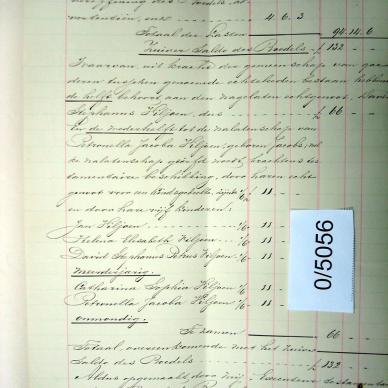 4. 6. 3
Totaal der Lasten 94. 14. 6
Zuiver Saldo des Boedels £ 132 - -
Waarvan uit kracht der gemeenschap van goe
deren tusschen genoemde echtelieden bestaan hebbende
de helft behoort aan den nagelaten echtgenoot,
Stephanus Viljoen, dus £ 66 - -
En de wederhelft tot de nalatenschap van
Petronella Jacoba Viljoen, geboren Jacobs,
de nalatenschap geërfd wordt, krachtens tes
tamentaire beschikking, door haren echt
genoot voor een kindsgedeelte, zijnde 1/6 £ 11 - -
en door hare vijf kinderen:
Jan Viljoen 1/6 - 11 - -
Helena Elisabeth Viljoen 1/6 - 11 - -
David Stephanus Petrus Viljoen 1/6 - 11 - -
meerderjarig.
Catharina Sophia Viljoen 1/6 - 11 - -
Petronella Jacoba Viljoen 1/6 - 11 - -
onmondig.
Te zamen 66 - -
Totaal, overeenkomende met het zuiver
Saldo des Boedels £ 132 - -
Aldus opgemaakt door mij
0/5056